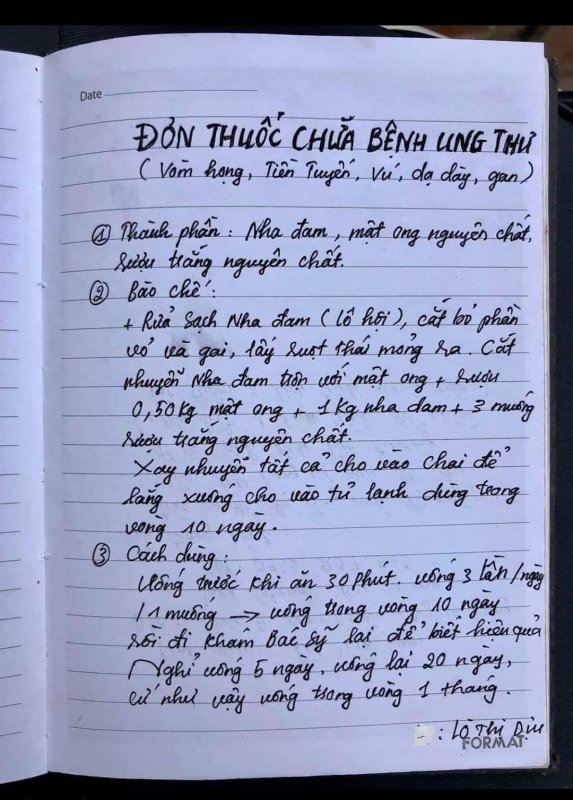 Date
ĐƠN THUỐC CHỮA BỆNH UNG THƯ
(Vòm họng, Tiền Tuyến, Vú, dạ dày, gan)
① Thành phần: Nha đam, mật ong nguyên chất,
rượu trắng nguyên chất.
② Bào chế:
+ Rửa sạch Nha đam (lô hội), cắt bỏ phần
vỏ và gai, lấy ruột thái mỏng ra. Cắt
nhuyễn Nha đam trộn với mật ong + rượu
0,50kg mật ong + 1kg nha đam + 3 muống
rượu trắng nguyên chất.
Xay nhuyễn tất cả cho vào chai để
lắng xuống cho vào tủ lạnh dùng trong
vòng 10 ngày.
③ Cách dùng:
Uống trước khi ăn 30 phút. uống 3 lần/ngày
/1 muống → uống trong vòng 10 ngày
rồi đi khám Bác sỹ lại để biết hiệu quả
Nghỉ uống 5 ngày. uống lại 20 ngày,
cứ như vậy uống trong vòng 1 tháng.
: Lò Thị Dịu
FORMAT